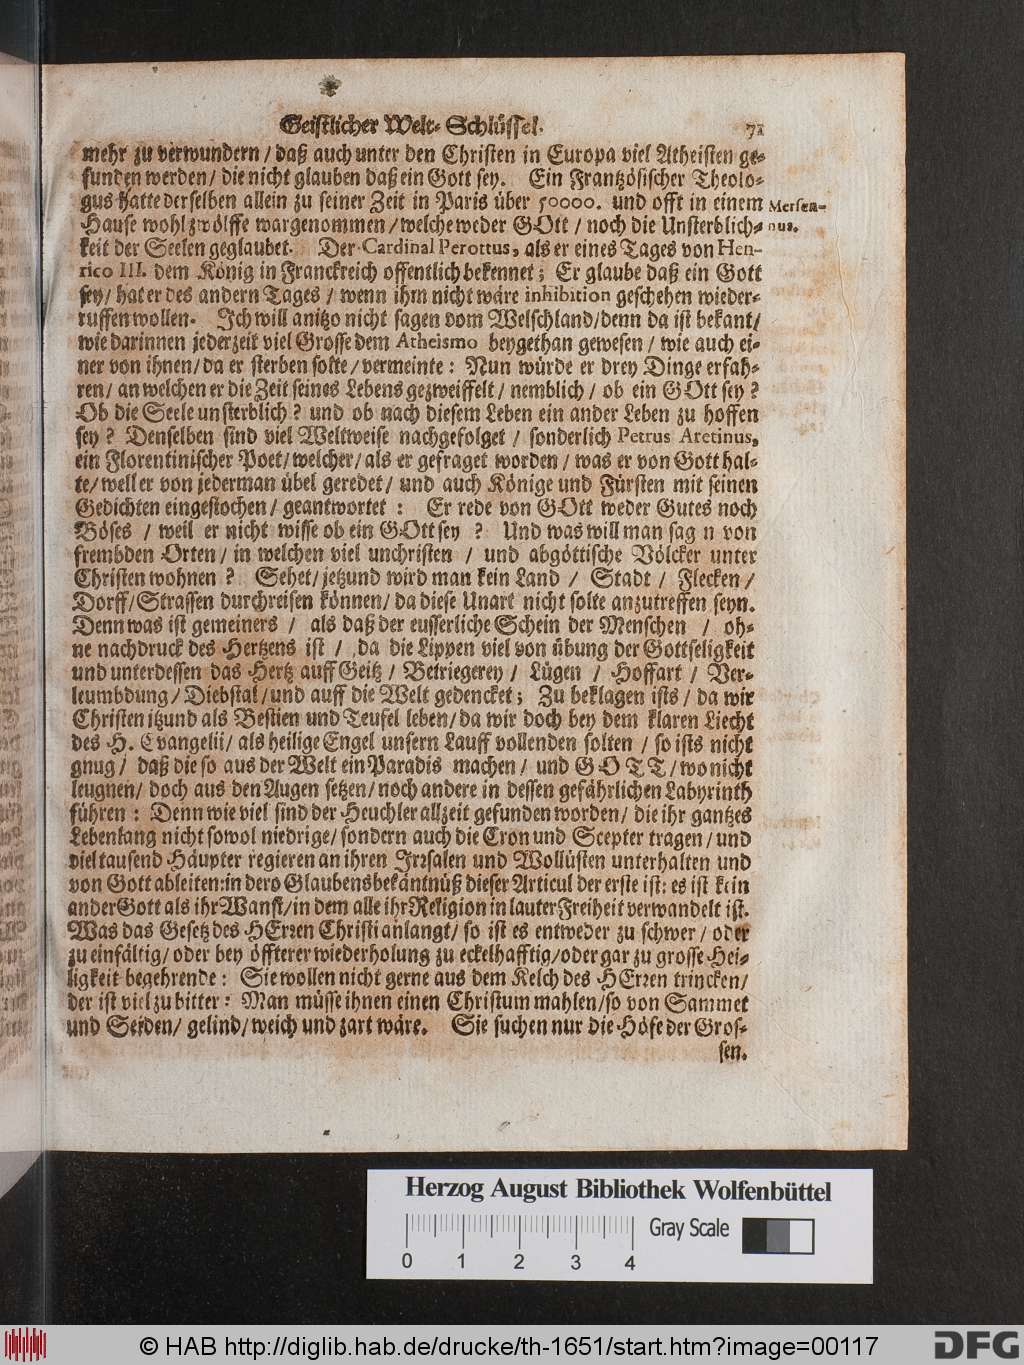 Geistlicher Welt-Schlüssel. 71
mehr zu verwundern/ daß auch unter den Christen in Europa viel Atheisten ge-
funden werden/ die nicht glauben daß ein Gott sey. Ein Frantzösischer Theolo-
gus hatte derselben allein zu seiner Zeit in Paris über 50000. und offt in einem
Mersen-
nus.
Hause wohl zwölffe wargenommen/ welche weder GOtt/ noch die Unsterblich-
keit der Seelen geglaubet. Der Cardinal Perottus, als er eines Tages von Hen-
rico III. dem König in Franckreich offentlich bekennet; Er glaube daß ein Gott
sey/ hat er des andern Tages/ wenn ihm nicht wäre inhibition geschehen wieder-
ruffen wollen. Ich will anitzo nicht sagen vom Welschland/ denn da ist bekant/
wie darinnen jederzeit viel Grosse dem Atheismo beygethan gewesen/ wie auch ei-
ner von ihnen/ da er sterben solte/ vermeinte: Nun würde er drey Dinge erfah-
ren/ an welchen er die Zeit seines Lebens gezweiffelt/ nemblich/ ob ein GOtt sey?
Ob die Seele unsterblich? und ob nach diesem Leben ein ander Leben zu hoffen
sey? Denselben sind viel Weltweise nachgefolget/ sonderlich Petrus Aretinus,
ein Florentinischer Poet/ welcher/ als er gefraget worden/ was er von Gott hal-
te/ weil er von jederman übel geredet/ und auch Könige und Fürsten mit seinen
Gedichten eingestochen/ geantwortet: Er rede von GOtt weder Gutes noch
Böses/ weil er nicht wisse ob ein GOtt sey? Und was will man sag n von
frembden Orten/ in welchen viel unchristen/ und abgöttische Völcker unter
Christen wohnen? Sehet/ jetzund wird man kein Land/ Stadt/ Flecken/
Dorff/ Strassen durchreisen können/ da diese Unart nicht solte anzutreffen seyn.
Denn was ist gemeiners/ als daß der eusserliche Schein der Menschen/ oh-
ne nachdruck des Hertzens ist/ da die Lippen viel von übung der Gottseligkeit
und unterdessen das Hertz auff Geitz/ Betriegerey/ Lügen/ Hoffart/ Ver-
leumbdung/ Diebstal/ und auff die Welt gedencket; Zu beklagen ists/ da wir
Christen itzund als Bestien und Teufel leben/ da wir doch bey dem klaren Liecht
des H. Evangelii/ als heilige Engel unsern Lauff vollenden solten/ so ists nicht
gnug/ daß die so aus der Welt ein Paradis machen/ und GOTT/ wo nicht
leugnen/ doch aus den Augen setzen/ noch andere in dessen gefährlichen Labyrinth
führen: Denn wie viel sind der Heuchler allzeit gefunden worden/ die ihr gantzes
Lebenlang nicht sowol niedrige/ sondern auch die Cron und Scepter tragen/ und
viel tausend Häupter regieren an ihren Irrsalen und Wollüsten unterhalten und
von Gott ableiten: in dero Glaubensbekäntnüß dieser Articul der erste ist: es ist kein
ander Gott als ihr Wanst/ in dem alle ihr Religion in lauter Freiheit verwandelt ist.
Was das Gesetz des HErren Christi anlangt/ so ist es entweder zu schwer/ oder
zu einfältig/ oder bey öffterer wiederholung zu eckelhafftig/ oder gar zu grosse Hei-
ligkeit begehrende: Sie wollen nicht gerne aus dem Kelch des HErren trincken/
der ist viel zu bitter: Man müsse ihnen einen Christum mahlen/ so von Sammet
und Seiden/ gelind/ weich und zart wäre. Sie suchen nur die Höfe der Gros-
sen.
Herzog August Bibliothek Wolfenbüttel
Gray Scale
0 1 2 3 4
© HAB http://diglib.hab.de/drucke/th-1651/start.htm?image=00117
DFG